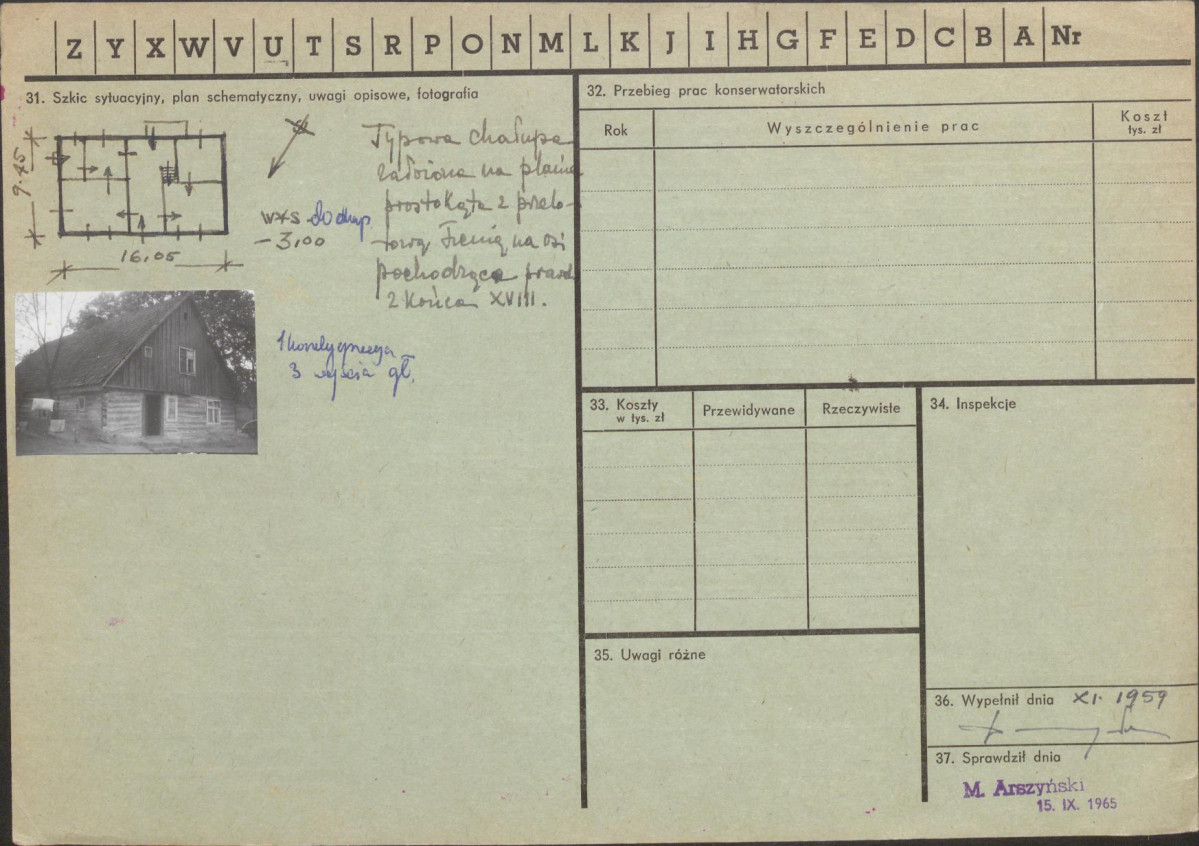 Z Y X W V U T S R P O N M L K J I H G F E D C B A Nr
31. Szkic sytuacyjny, plan schematyczny, uwagi opisowe, fotografia
9.45
16,05
-3,00
Typowa chałupa
założona na planie
prostokąta z przelo-
tową sienią na osi
pochodząca prawd
z końca XVIII.
3 wyjścia gł.
32. Przebieg prac konserwatorskich
Rok
Wyszczególnienie prac
Koszt
tys. zł
33. Koszty
w tys. zł
Przewidywane
Rzeczywiste
34. Inspekcje
35. Uwagi różne
36. Wypełnił dnia XI. 1959
37. Sprawdził dnia
M. Arszyński
15. IX. 1965